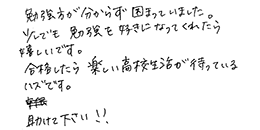 勉強方が分からず困まっていました。
少しでも勉強を好きになってくれたら
嬉しいです。
合格したら楽しい高校生活が待っている
ハズです。
助けて下さい!!